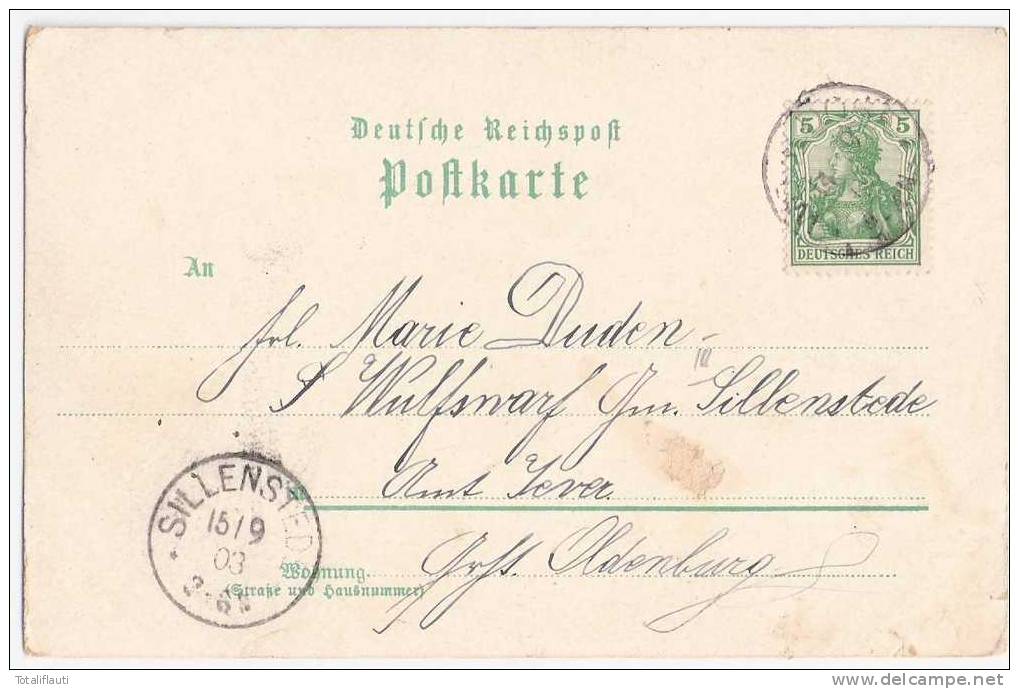 Deutsche Reichspost
Postkarte
5 5
DEUTSCHES REICH
An
Frl. Marie Duden
Wulfswarf Gm. Sillenstede
Amt Jever
Grht. Oldenburg
SILLENSTEDE
15/9
03
3-6N
Wohnung
(Straße und Hausnummer)
Totaliflauti
www.delcampe.net